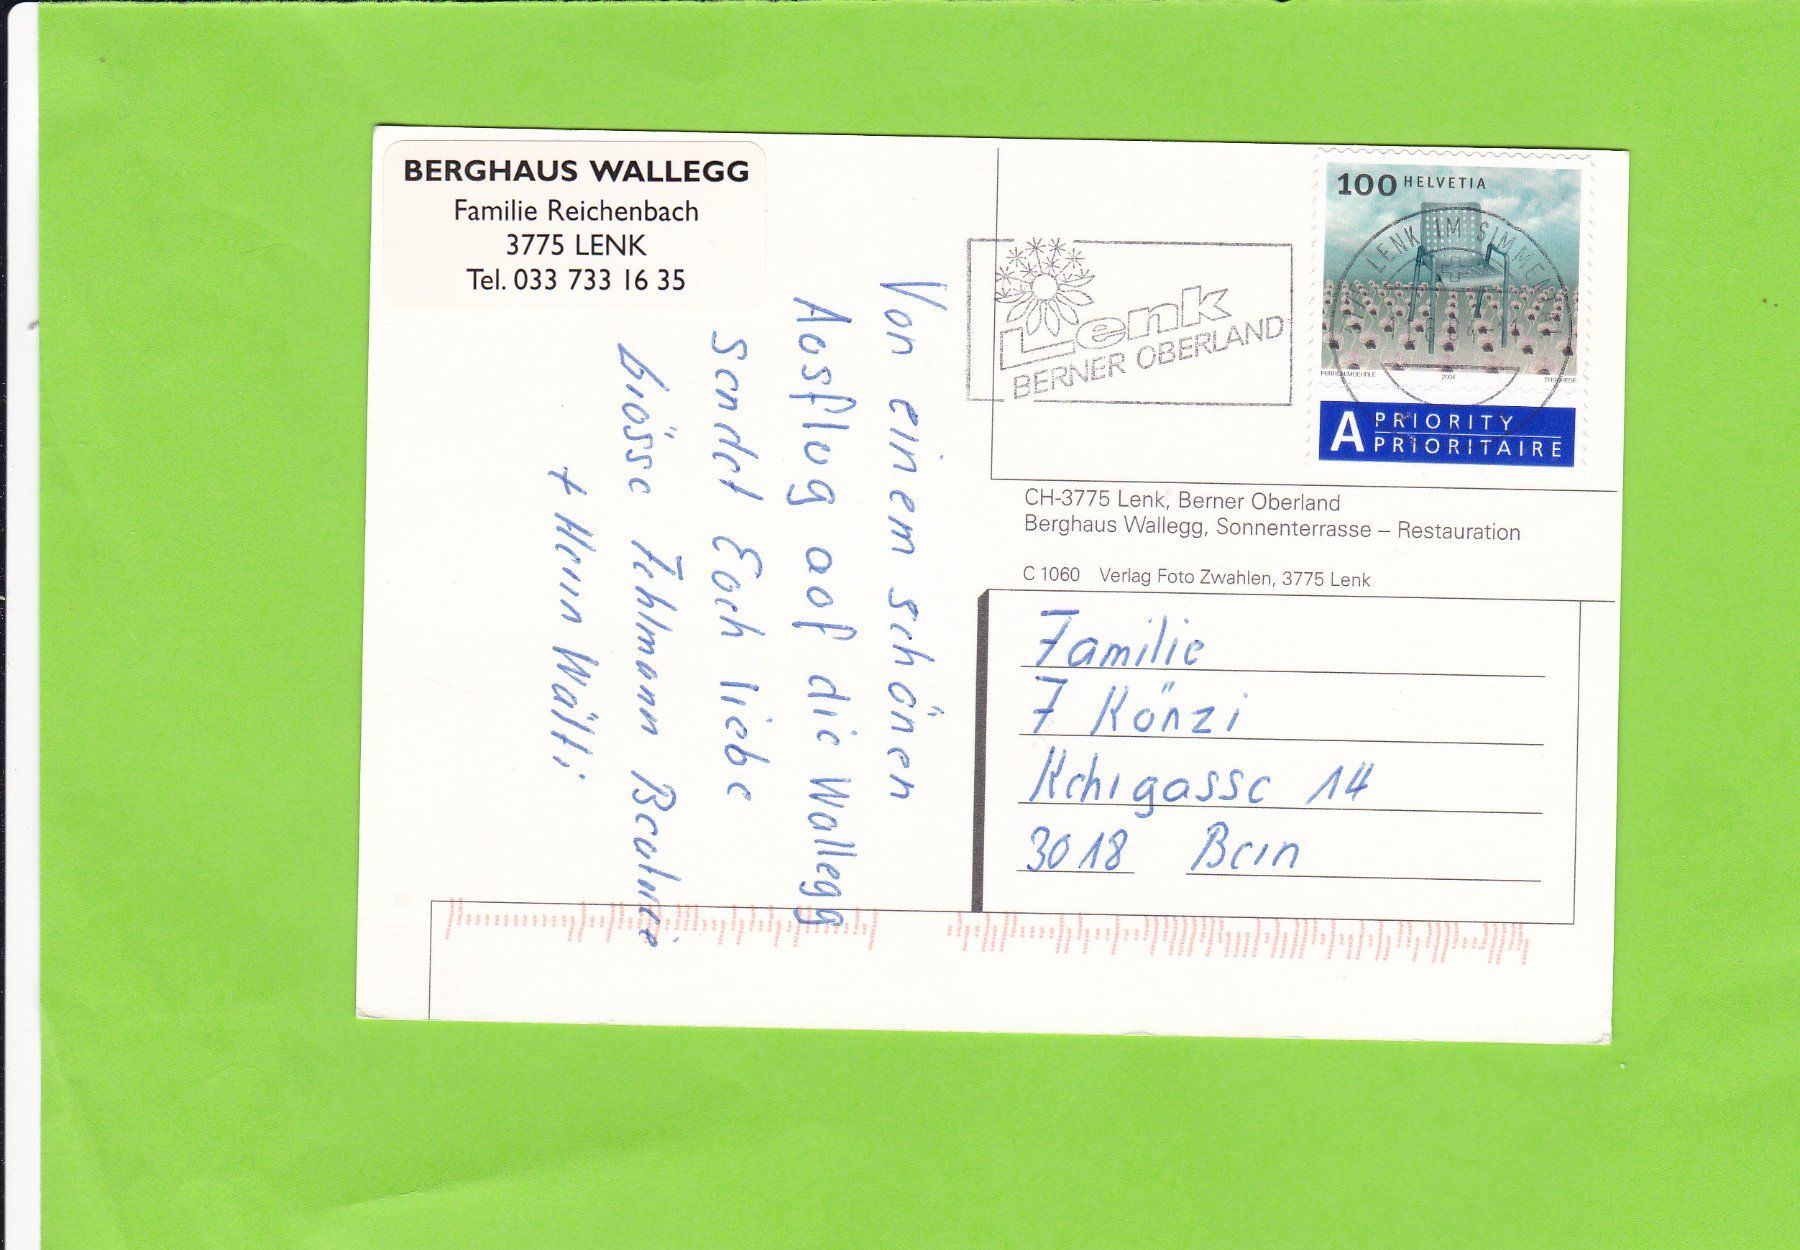 BERGHAUS WALLEGG
Familie Reichenbach
3775 LENK
Tel. 033 733 16 35
Von einem schönen
Ausflug auf die Wallegg
Sendet Euch liebe
Grüsse Fehlmann Beatrice
+ Henn Wälti
Lenk
BERNER OBERLAND
100 HELVETIA
LENK IM SIMMENT
2004
A PRIORITY
PRIORITAIRE
CH-3775 Lenk, Berner Oberland
Berghaus Wallegg, Sonnenterrasse – Restauration
C 1060 Verlag Foto Zwahlen, 3775 Lenk
Familie
F Künzi
gasse 14
3018 Bern